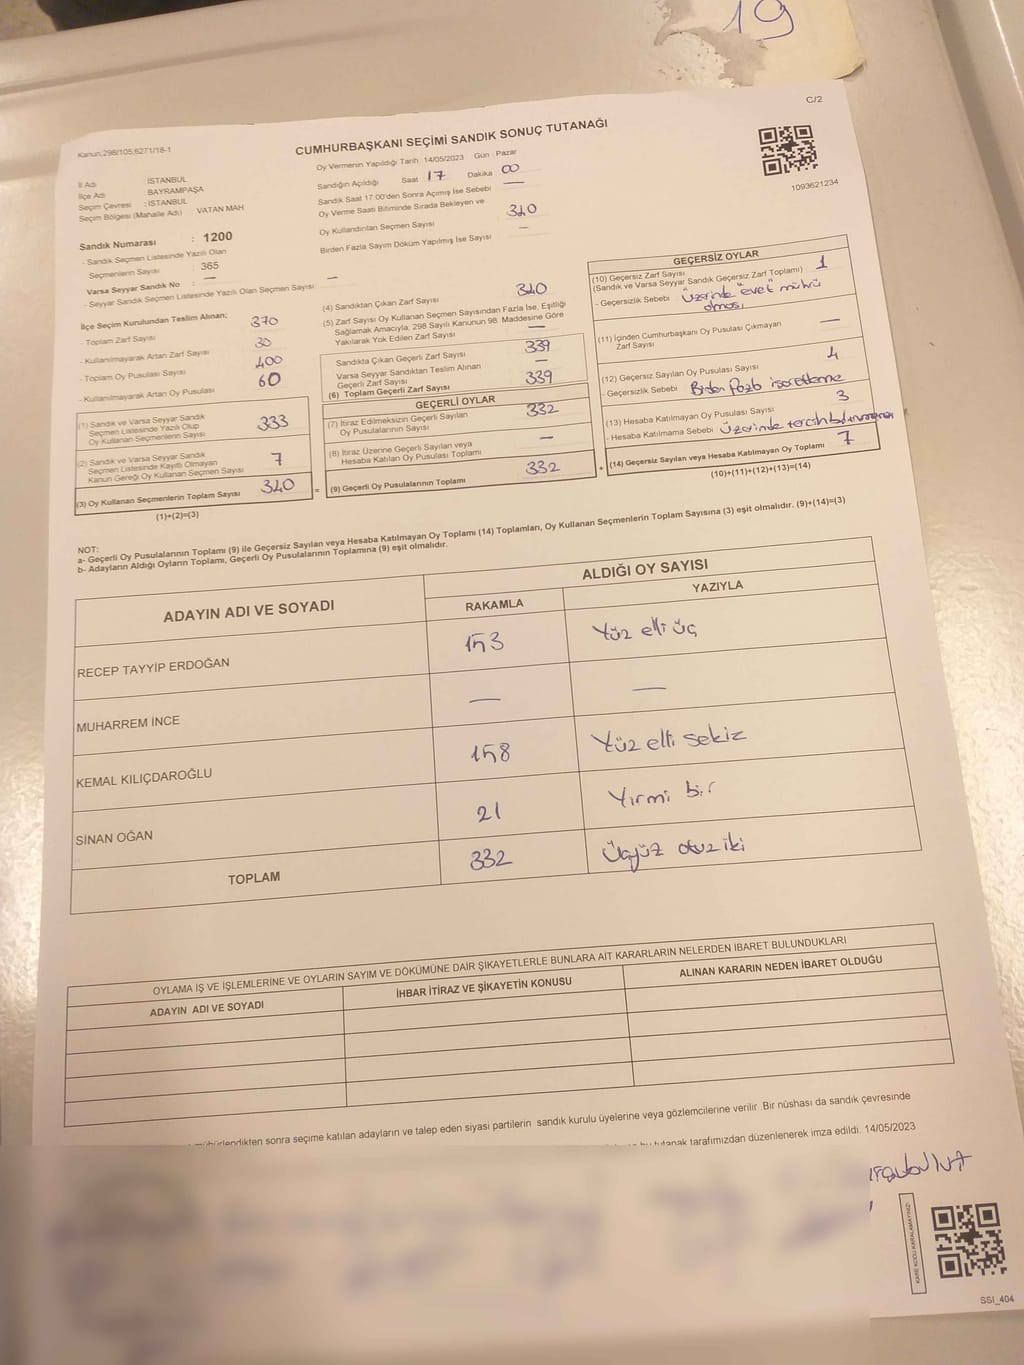 19
C/2
Kanun;298/105;6271/18-1
CUMHURBAŞKANI SEÇİMİ SANDIK SONUÇ TUTANAĞI
Oy Vermenin Yapıldığı Tarih : 14/05/2023 Gün : Pazar
Sandığın Açıldığı Saat 17 Dakika 00
Sandık Saat 17:00'den Sonra Açımış İse Sebebi —
Oy Verme Saati Bitiminde Sırada Bekleyen ve
Oy Kullandırılan Seçmen Sayısı 340
Birden Fazla Sayım Döküm Yapılmış İse Sayısı —
1093621234
İl Adı : İSTANBUL
İlçe Adı : BAYRAMPAŞA
Seçim Çevresi : İSTANBUL
Seçim Bölgesi (Mahalle Adı) VATAN MAH
Sandık Numarası : 1200
- Sandık Seçmen Listesinde Yazılı Olan
Seçmenlerin Sayısı : 365
Varsa Seyyar Sandık No : —
- Seyyar Sandık Seçmen Listesinde Yazılı Olan Seçmen Sayısı : —
İlçe Seçim Kurulundan Teslim Alınan;
- Toplam Zarf Sayısı 370
- Kullanılmayarak Artan Zarf Sayısı 30
- Toplam Oy Pusulası Sayısı 400
- Kullanılmayarak Artan Oy Pusulası 60
(1) Sandık ve Varsa Seyyar Sandık
Seçmen Listesinde Yazılı Olup
Oy Kullanan Seçmenlerin Sayısı 333
(2) Sandık ve Varsa Seyyar Sandık
Seçmen Listesinde Kayıtlı Olmayan
Kanun Gereği Oy Kullanan Seçmen Sayısı 7
(3) Oy Kullanan Seçmenlerin Toplam Sayısı 340 =
(1)+(2)=(3)
(4) Sandıktan Çıkan Zarf Sayısı 340
(5) Zarf Sayısı Oy Kullanan Seçmen Sayısından Fazla İse, Eşitliği
Sağlamak Amacıyla, 298 Sayılı Kanunun 98. Maddesine Göre
Yakılarak Yok Edilen Zarf Sayısı —
Sandıkta Çıkan Geçerli Zarf Sayısı 339
Varsa Seyyar Sandıktan Teslim Alınan
Geçerli Zarf Sayısı —
(6) Toplam Geçerli Zarf Sayısı 339
GEÇERLİ OYLAR
(7) İtiraz Edilmeksizin Geçerli Sayılan
Oy Pusulalarının Sayısı 332
(8) İtiraz Üzerine Geçerli Sayılan veya
Hesaba Katılan Oy Pusulası Toplamı —
(9) Geçerli Oy Pusulalarının Toplamı 332 +
GEÇERSİZ OYLAR
(10) Geçersiz Zarf Sayısı
(Sandık ve Varsa Seyyar Sandık Geçersiz Zarf Toplamı) 1
- Geçersizlik Sebebi : Üzerinde "evet" mührü
olması
(11) İçinden Cumhurbaşkanı Oy Pusulası Çıkmayan
Zarf Sayısı —
(12) Geçersiz Sayılan Oy Pusulası Sayısı 4
- Geçersizlik Sebebi Birden fazla işaretleme
(13) Hesaba Katılmayan Oy Pusulası Sayısı 3
- Hesaba Katılmama Sebebi Üzerinde tercih
(14) Geçersiz Sayılan veya Hesaba Katılmayan Oy Toplamı 7
(10)+(11)+(12)+(13)=(14)
NOT:
a- Geçerli Oy Pusulalarının Toplamı (9) ile Geçersiz Sayılan veya Hesaba Katılmayan Oy Toplamı (14) Toplamları, Oy Kullanan Seçmenlerin Toplam Sayısına (3) eşit olmalıdır. (9)+(14)=(3)
b- Adayların Aldığı Oyların Toplamı, Geçerli Oy Pusulalarının Toplamına (9) eşit olmalıdır.
ADAYIN ADI VE SOYADI
ALDIĞI OY SAYISI
RAKAMLA YAZIYLA
RECEP TAYYİP ERDOĞAN 153 Yüz elli üç
MUHARREM İNCE — —
KEMAL KILIÇDAROĞLU 158 Yüz elli sekiz
SİNAN OĞAN 21 Yirmi bir
TOPLAM 332 Üçyüz otuz iki
OYLAMA İŞ VE İŞLEMLERİNE VE OYLARIN SAYIM VE DÖKÜMÜNE DAİR ŞİKAYETLERLE BUNLARA AİT KARARLARIN NELERDEN İBARET BULUNDUKLARI
ADAYIN ADI VE SOYADI İHBAR İTİRAZ VE ŞİKAYETİN KONUSU ALINAN KARARIN NEDEN İBARET OLDUĞU
mühürlendikten sonra seçime katılan adayların ve talep eden siyasi partilerin sandık kurulu üyelerine veya gözlemcilerine verilir Bir nüshası da sandık çevresinde
bu tutanak tarafımızdan düzenlenerek imza edildi. 14/05/2023
KARE KODU KARALAMAYINIZ!
SSI_404